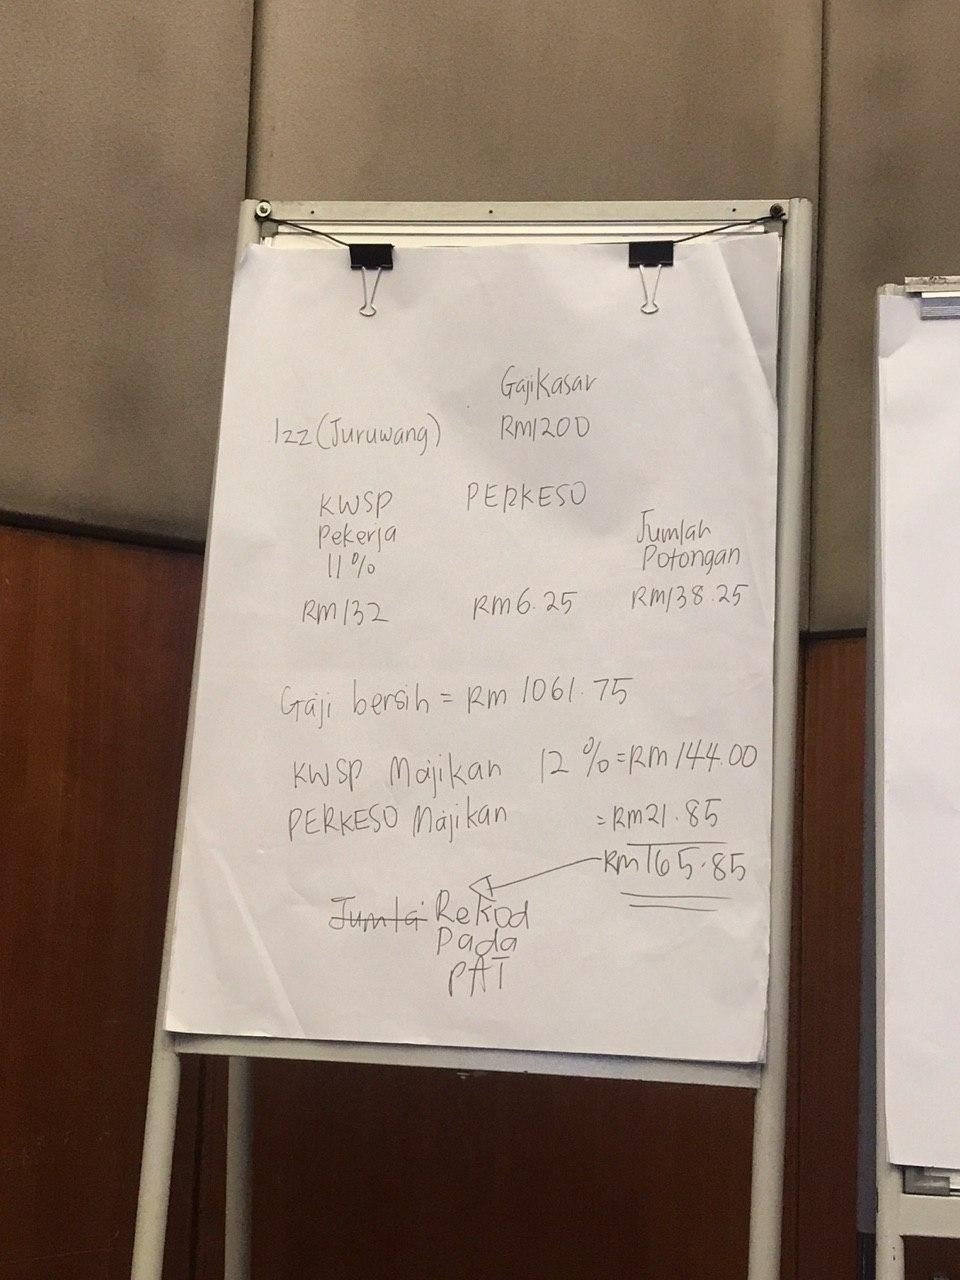 Gaji Kasar
Izz (Juruwang) RM1200
KWSP PERKESO
Pekerja Jumlah
11% Potongan
RM132 RM6.25 RM138.25
Gaji bersih = RM 1061.75
KWSP Majikan 12% = RM144.00
PERKESO Majikan = RM21.85
RM165.85
Jumla Rekod
Pada
PAT